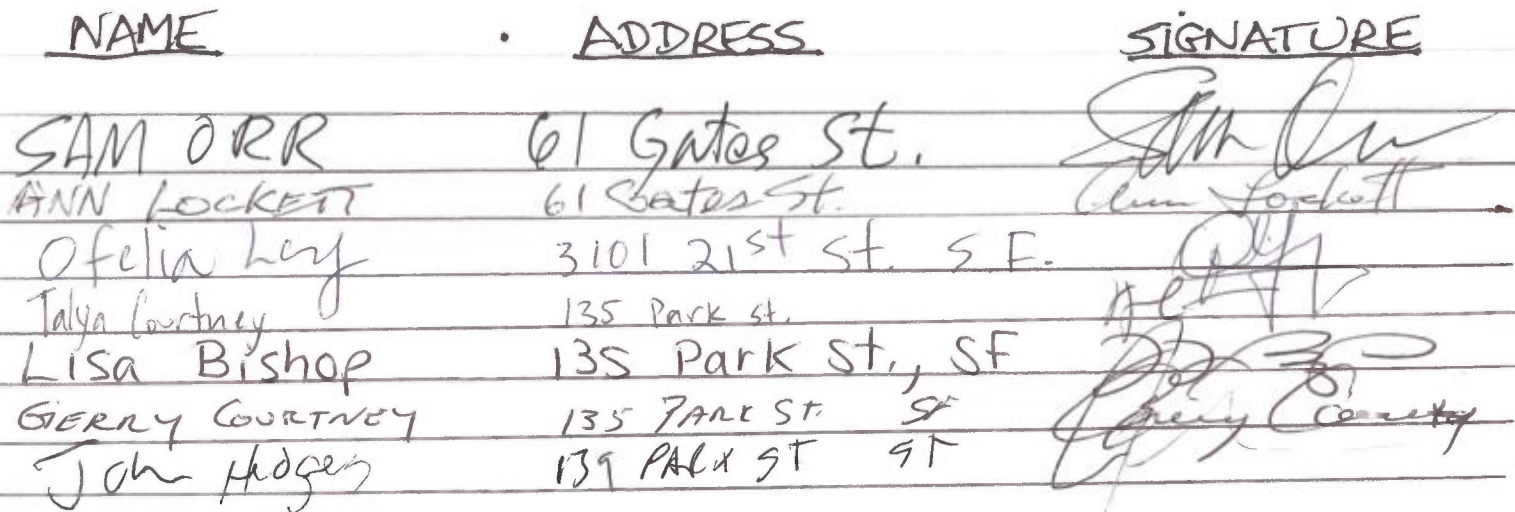 NAME ADDRESS SIGNATURE
SAM ORR 61 Gates St. Sam Orr
ANN LOCKETT 61 Gates St. Ann Lockett
Ofelia 3101 21st St. S F.
Talya Courtney 135 Park St.
Lisa Bishop 135 Park St., SF
GERRY COURTNEY 135 PARK ST. SF Gerry Courtney
John Hodges 139 PARK ST SF